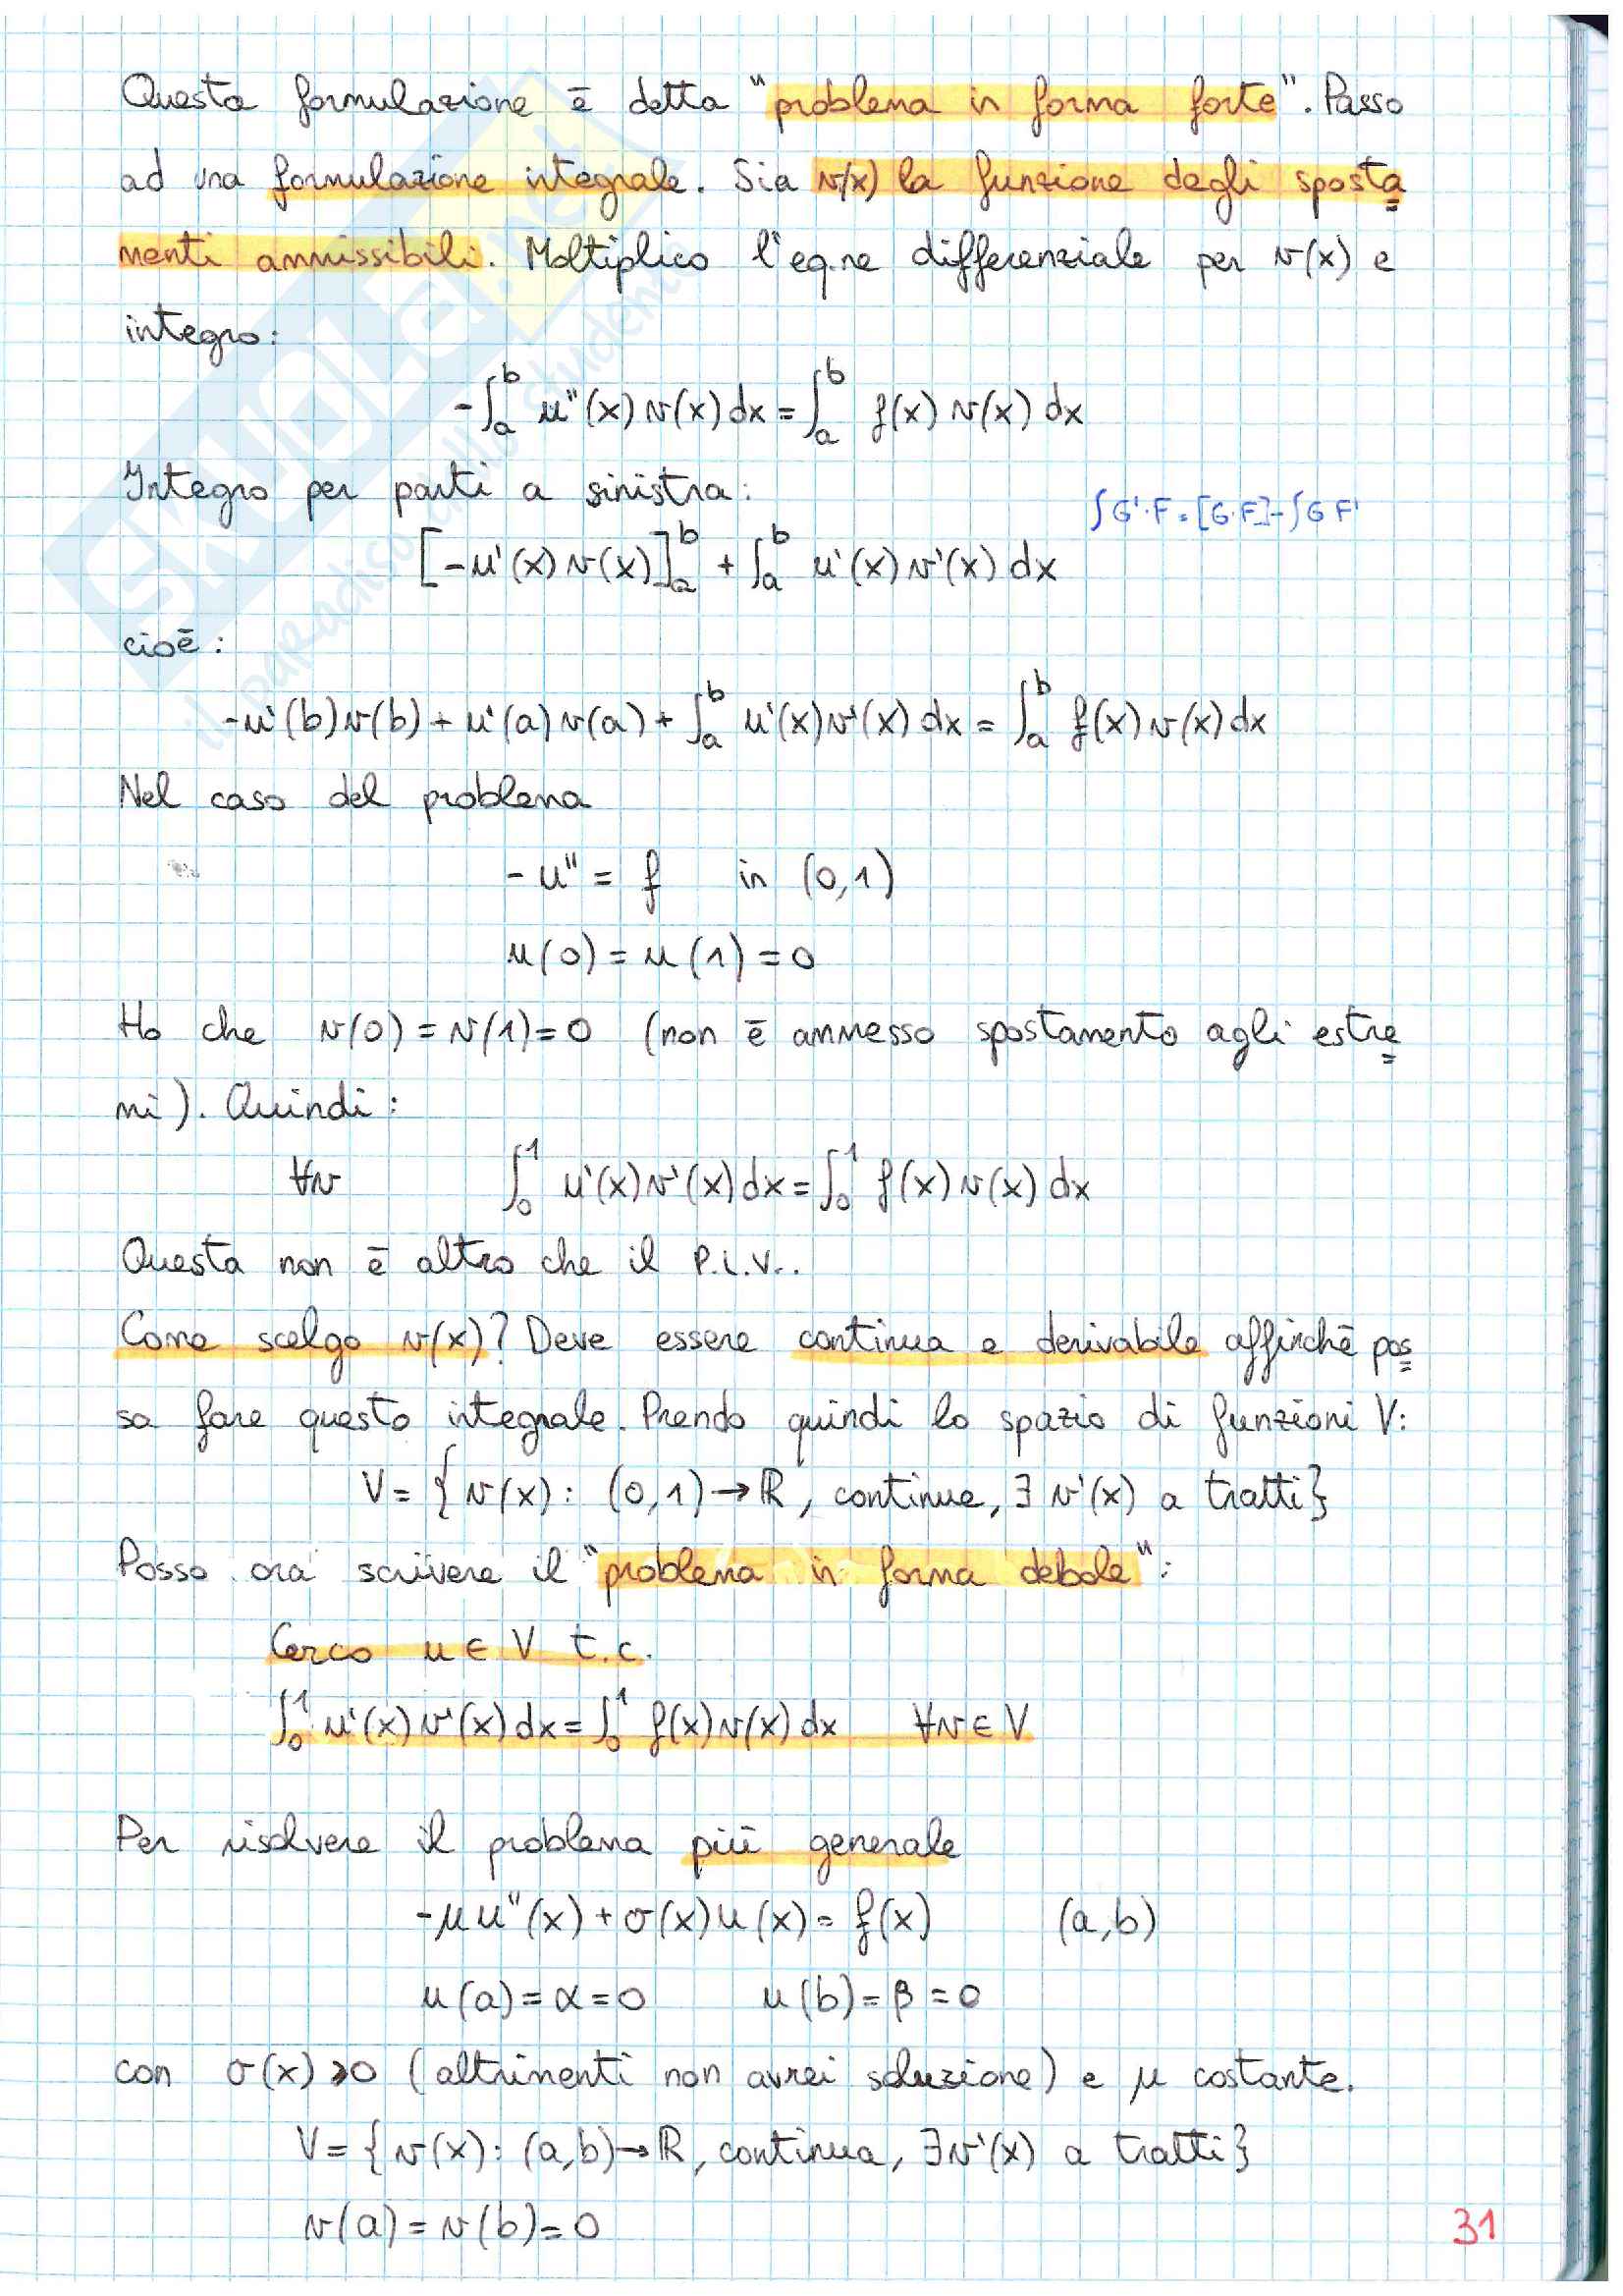 Questa formulazione è detta "problema in forma forte". Passo
ad una formulazione integrale. Sia v(x) la funzione degli sposta
menti ammissibili. Moltiplico l'eq.ne differenziale per v(x) e
integro:
-∫_a^b u''(x) v(x) dx = ∫_a^b f(x) v(x) dx
Integro per parti a sinistra:
∫G'·F = [G·F] - ∫G F'
[-u'(x) v(x)]_a^b + ∫_a^b u'(x) v'(x) dx
cioè:
-u'(b)v(b) + u'(a)v(a) + ∫_a^b u'(x)v'(x) dx = ∫_a^b f(x)v(x)dx
Nel caso del problema
-u'' = f in (0,1)
u(0) = u(1) = 0
Ho che v(0) = v(1) = 0 (non è ammesso spostamento agli estre
mi). Quindi:
∀v ∫_0^1 u'(x)v'(x)dx = ∫_0^1 f(x)v(x)dx
Questa non è altro che il P.L.V..
Come scelgo v(x)? Deve essere continua e derivabile affinchè pos
sa fare questo integrale. Prendo quindi lo spazio di funzioni V:
V = {v(x): (0,1)→ℝ, continue, ∃ v'(x) a tratti}
Posso ora scrivere il "problema in forma debole":
Cerco u ∈ V t.c.
∫_0^1 u'(x)v'(x)dx = ∫_0^1 f(x)v(x)dx ∀v ∈ V
Per risolvere il problema più generale
-μu''(x) + σ(x)u(x) = f(x) (a,b)
u(a) = α = 0 u(b) = β = 0
con σ(x) ≥ 0 (altrimenti non avrei soluzione) e μ costante.
V = {v(x): (a,b)→ℝ, continua, ∃v'(x) a tratti}
v(a) = v(b) = 0
31
SKUOLA.net
il paradiso dello studente